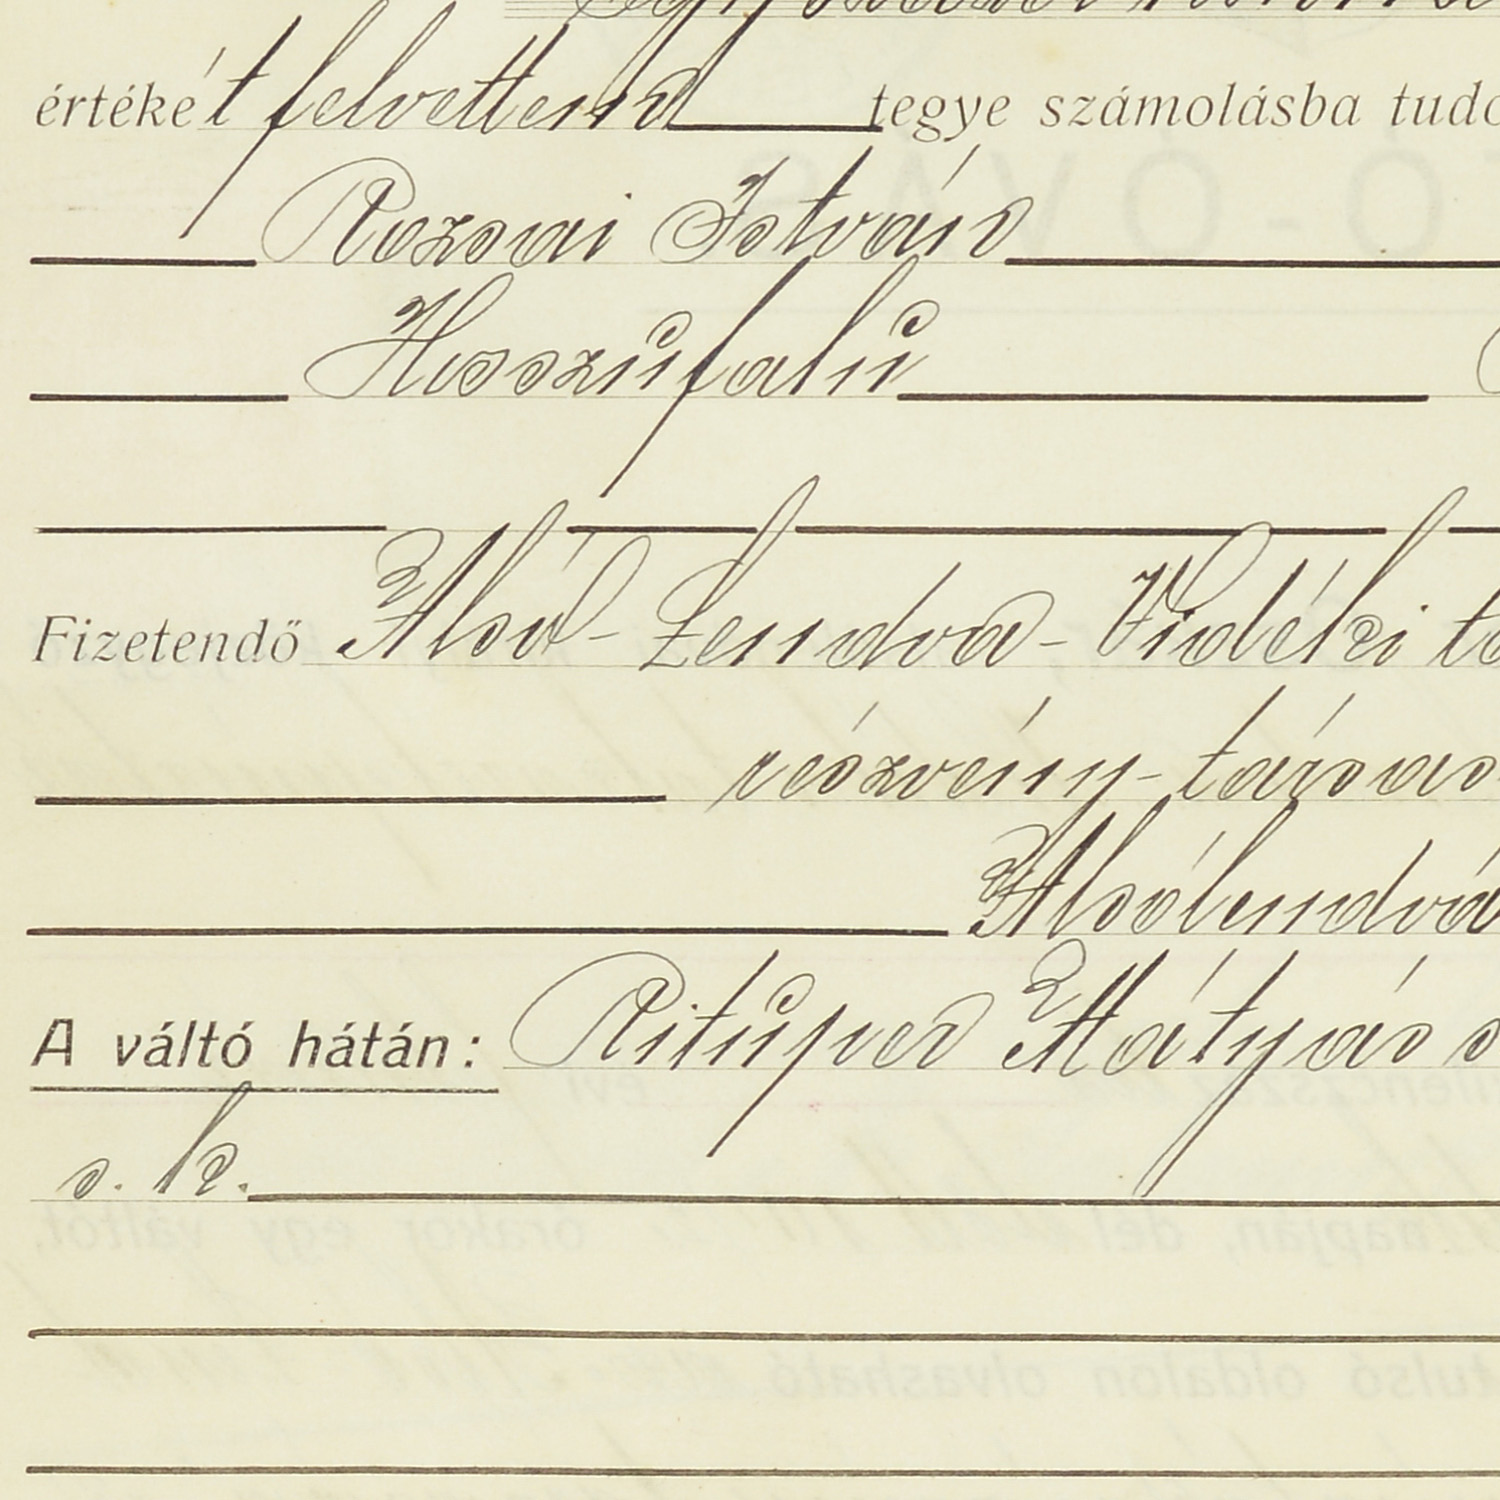 értékét felvettem tegye számolásba tudo
Rozsai István
Hosszúfalu
Fizetendő Alsó-Lendva-Vidéki ta
részvény-társas
Alsólendvá
A váltó hátán: Rituper Mátyás s
s. k.